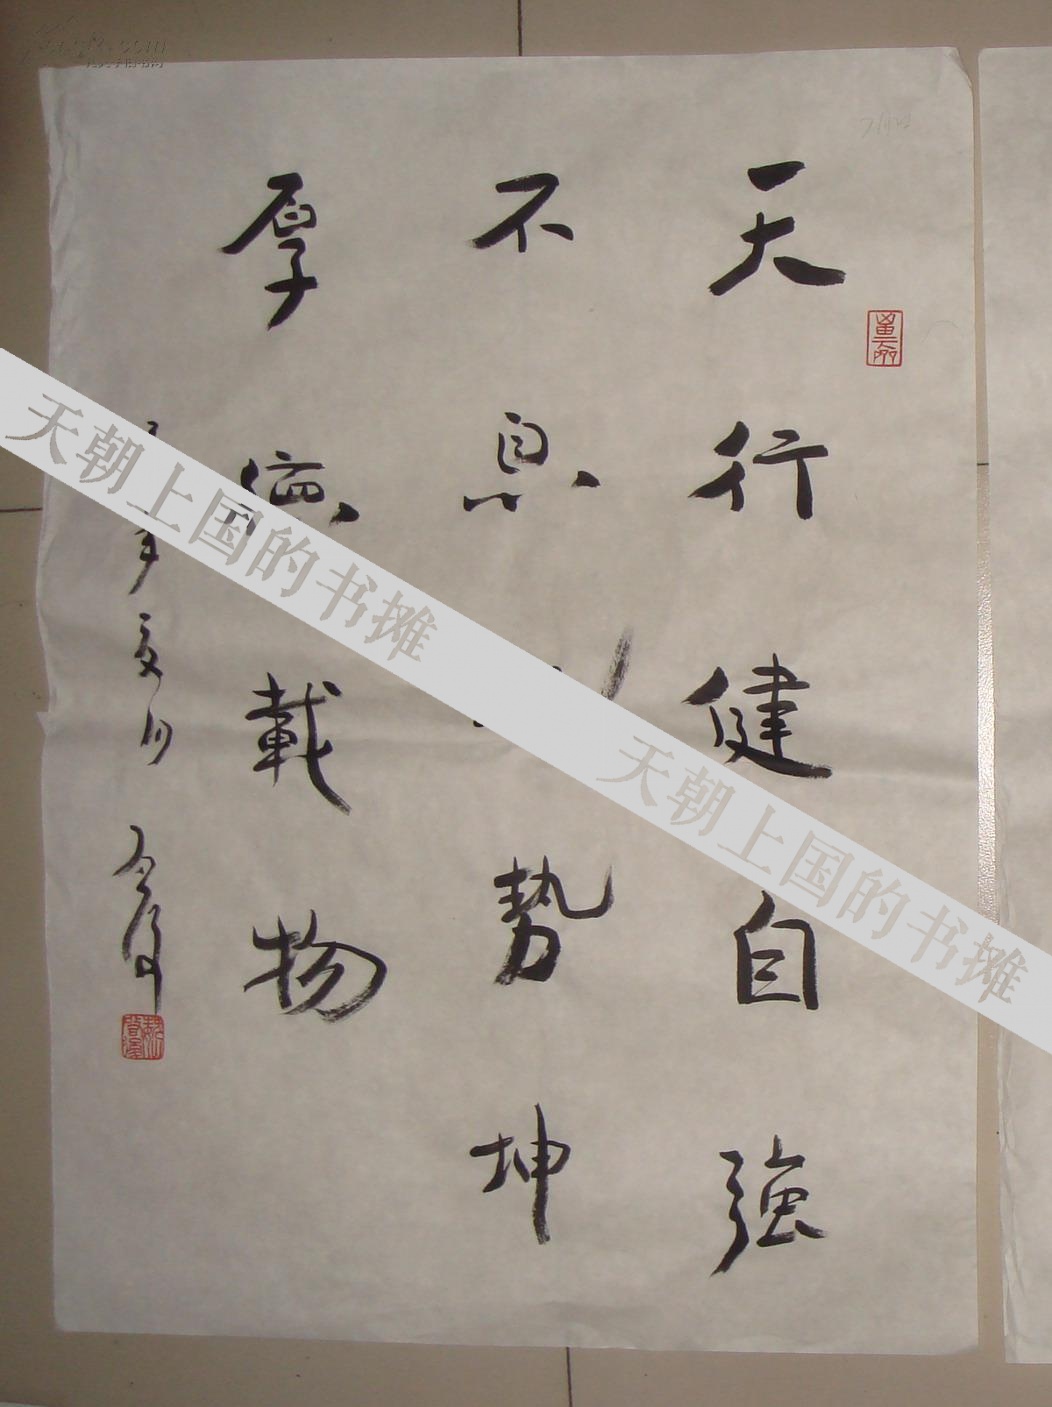 天行健自強
不息地勢坤
厚德載物
天朝上国的书摊
天朝上国的书摊